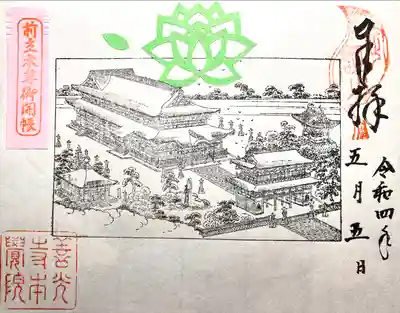 奉拝
令和四年
五月五日
前立本尊御開帳
善光
寺本
覺院